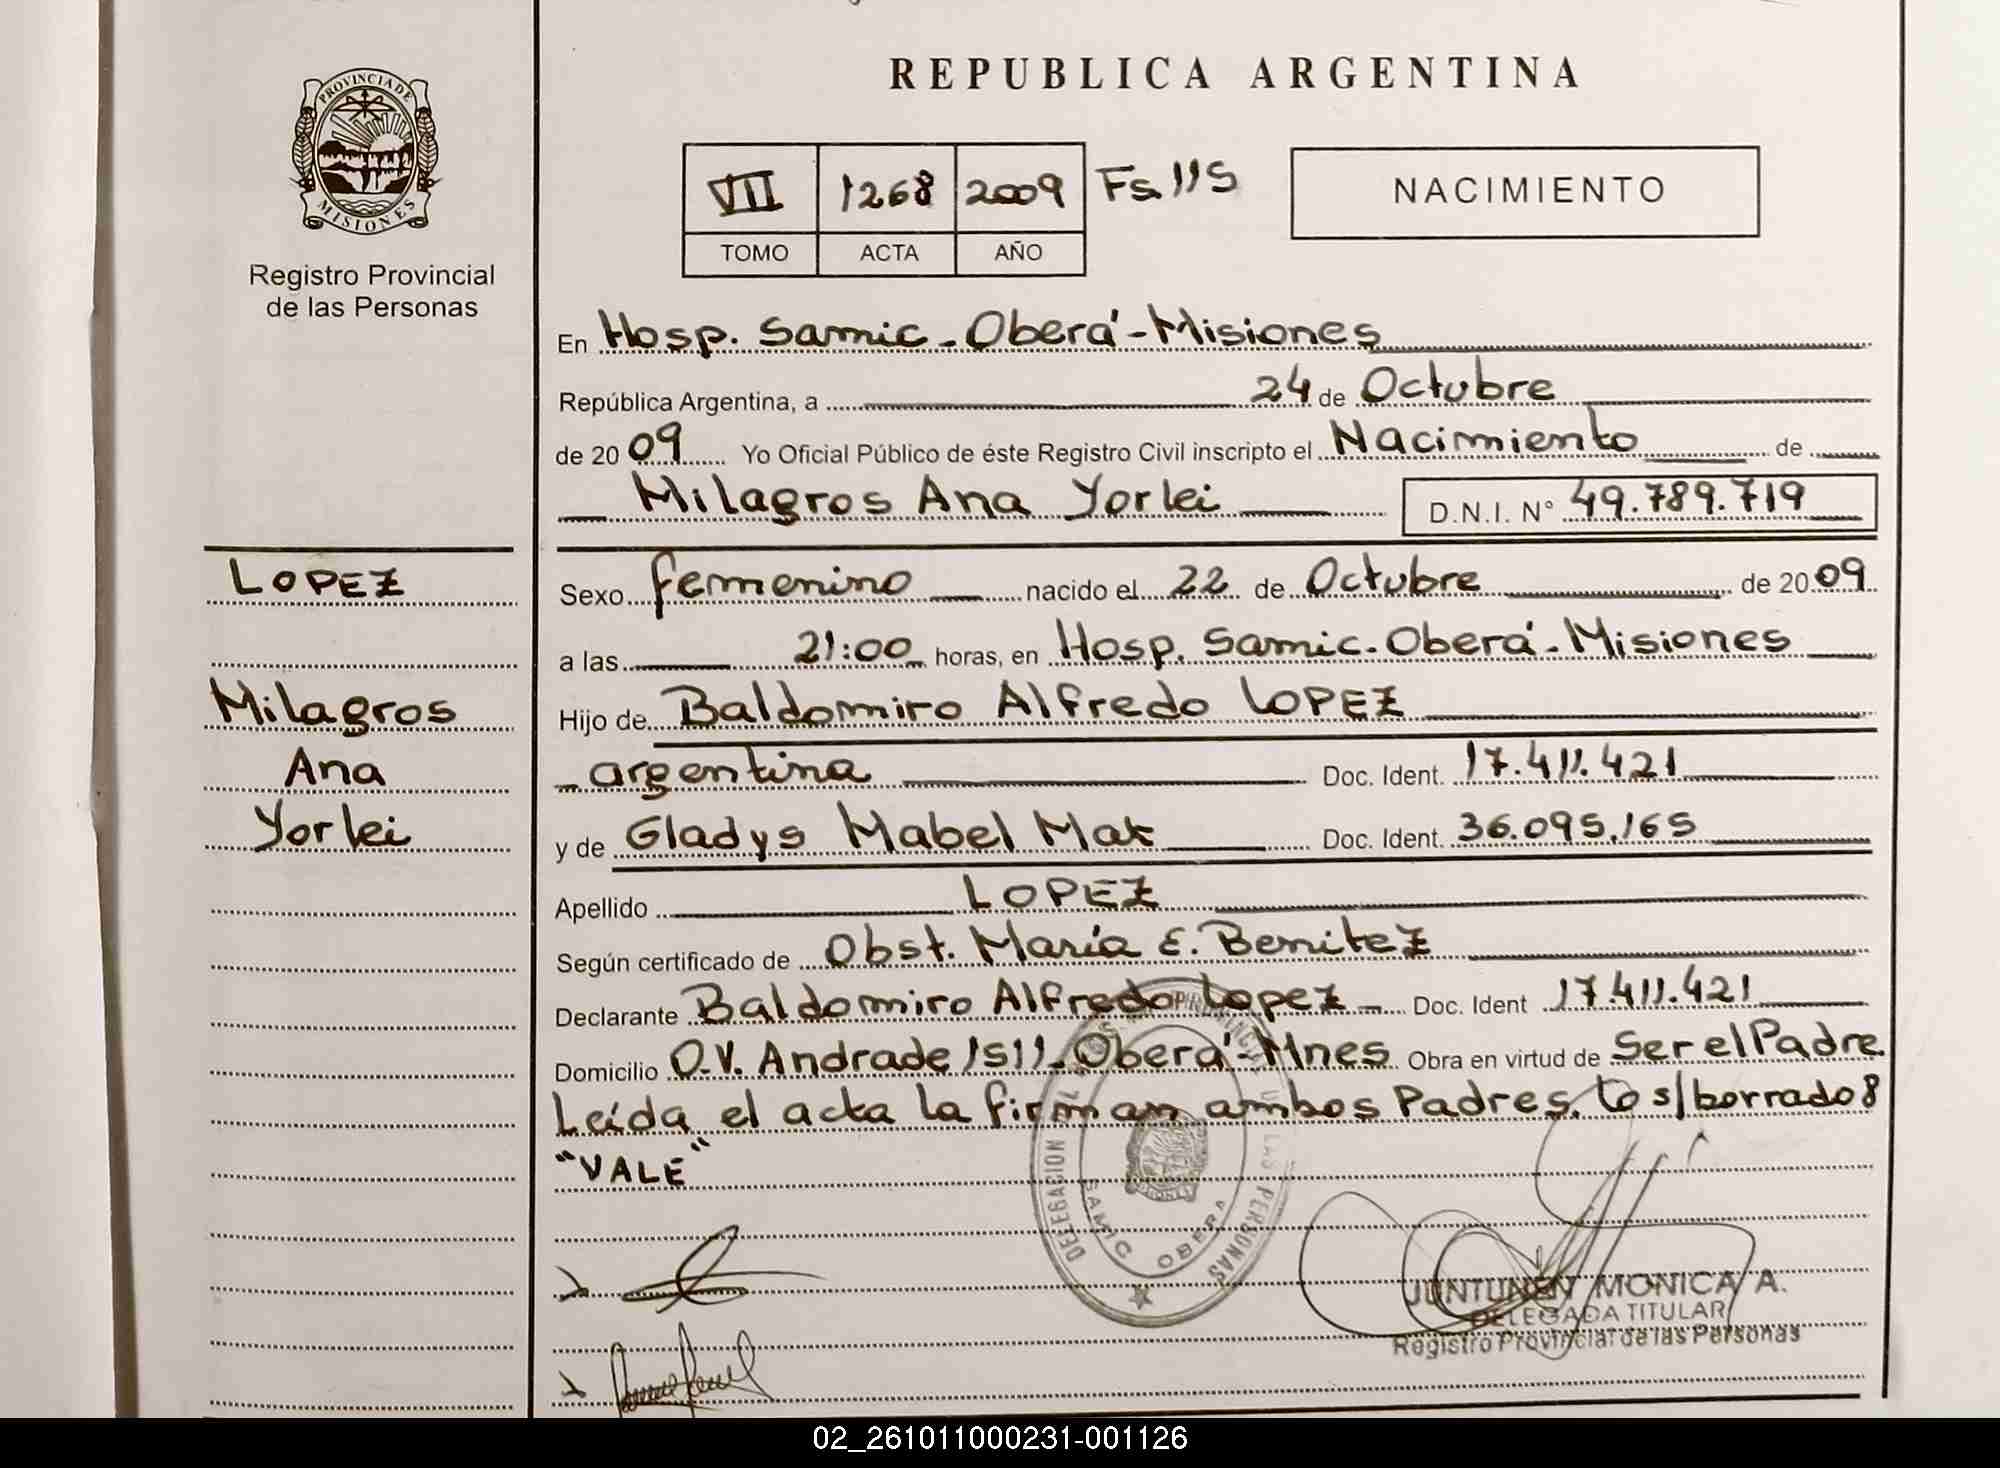 PROVINCIA DE
MISIONES
Registro Provincial
de las Personas
REPUBLICA ARGENTINA
VII 1268 2009 Fs. 115
TOMO ACTA AÑO
NACIMIENTO
En Hosp. Samic - Oberá - Misiones
República Argentina, a 24 de Octubre
de 2009 Yo Oficial Público de éste Registro Civil inscripto el Nacimiento de
Milagros Ana Yorlei D.N.I. N° 49.789.719
LOPEZ
Milagros
Ana
Yorlei
Sexo femenino nacido el 22 de Octubre de 2009
a las 21:00 horas, en Hosp. Samic - Oberá - Misiones
Hijo de Baldomiro Alfredo LOPEZ
argentina Doc. Ident. 17.411.421
y de Gladys Mabel Mak Doc. Ident. 36.095.165
Apellido LOPEZ
Según certificado de Obst. María E. Benitez
Declarante Baldomiro Alfredo Lopez Doc. Ident 17.411.421
Domicilio O.V. Andrade 1511 - Oberá - Mnes Obra en virtud de Ser el Padre
Leída el acta la firman ambos Padres. to s/borrado 8
"VALE"
DELEGACION DEL REG. PROVINCIAL DE LAS PERSONAS
SAMIC OBERA
JUNTUNEN MONICA A.
DELEGADA TITULAR
Registro Provincial de las Personas
02_261011000231-001126